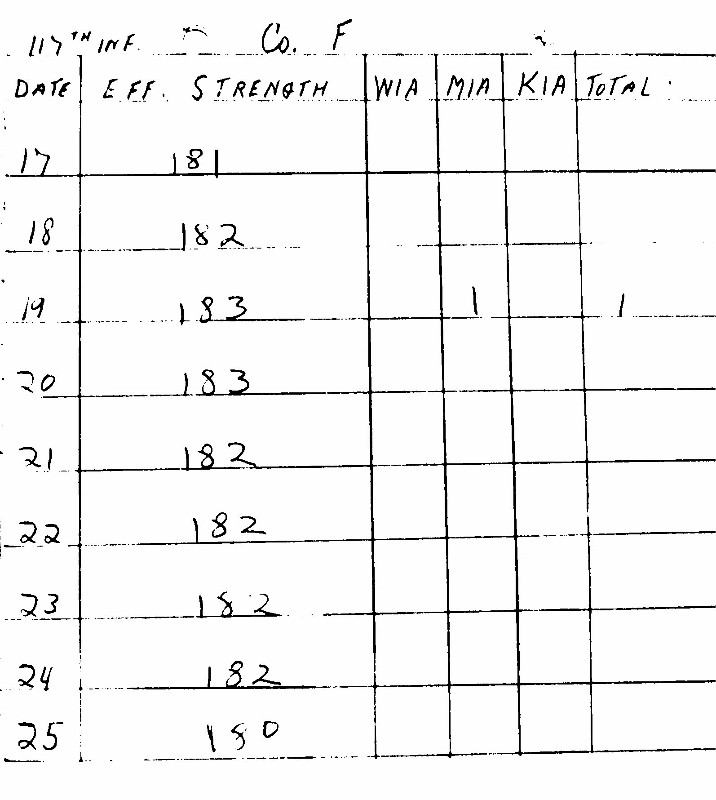 117TH INF. Co. F
DATE EFF. STRENGTH WIA MIA KIA TOTAL
17 181
18 182
19 183 1 1
20 183
21 182
22 182
23 182
24 182
25 180